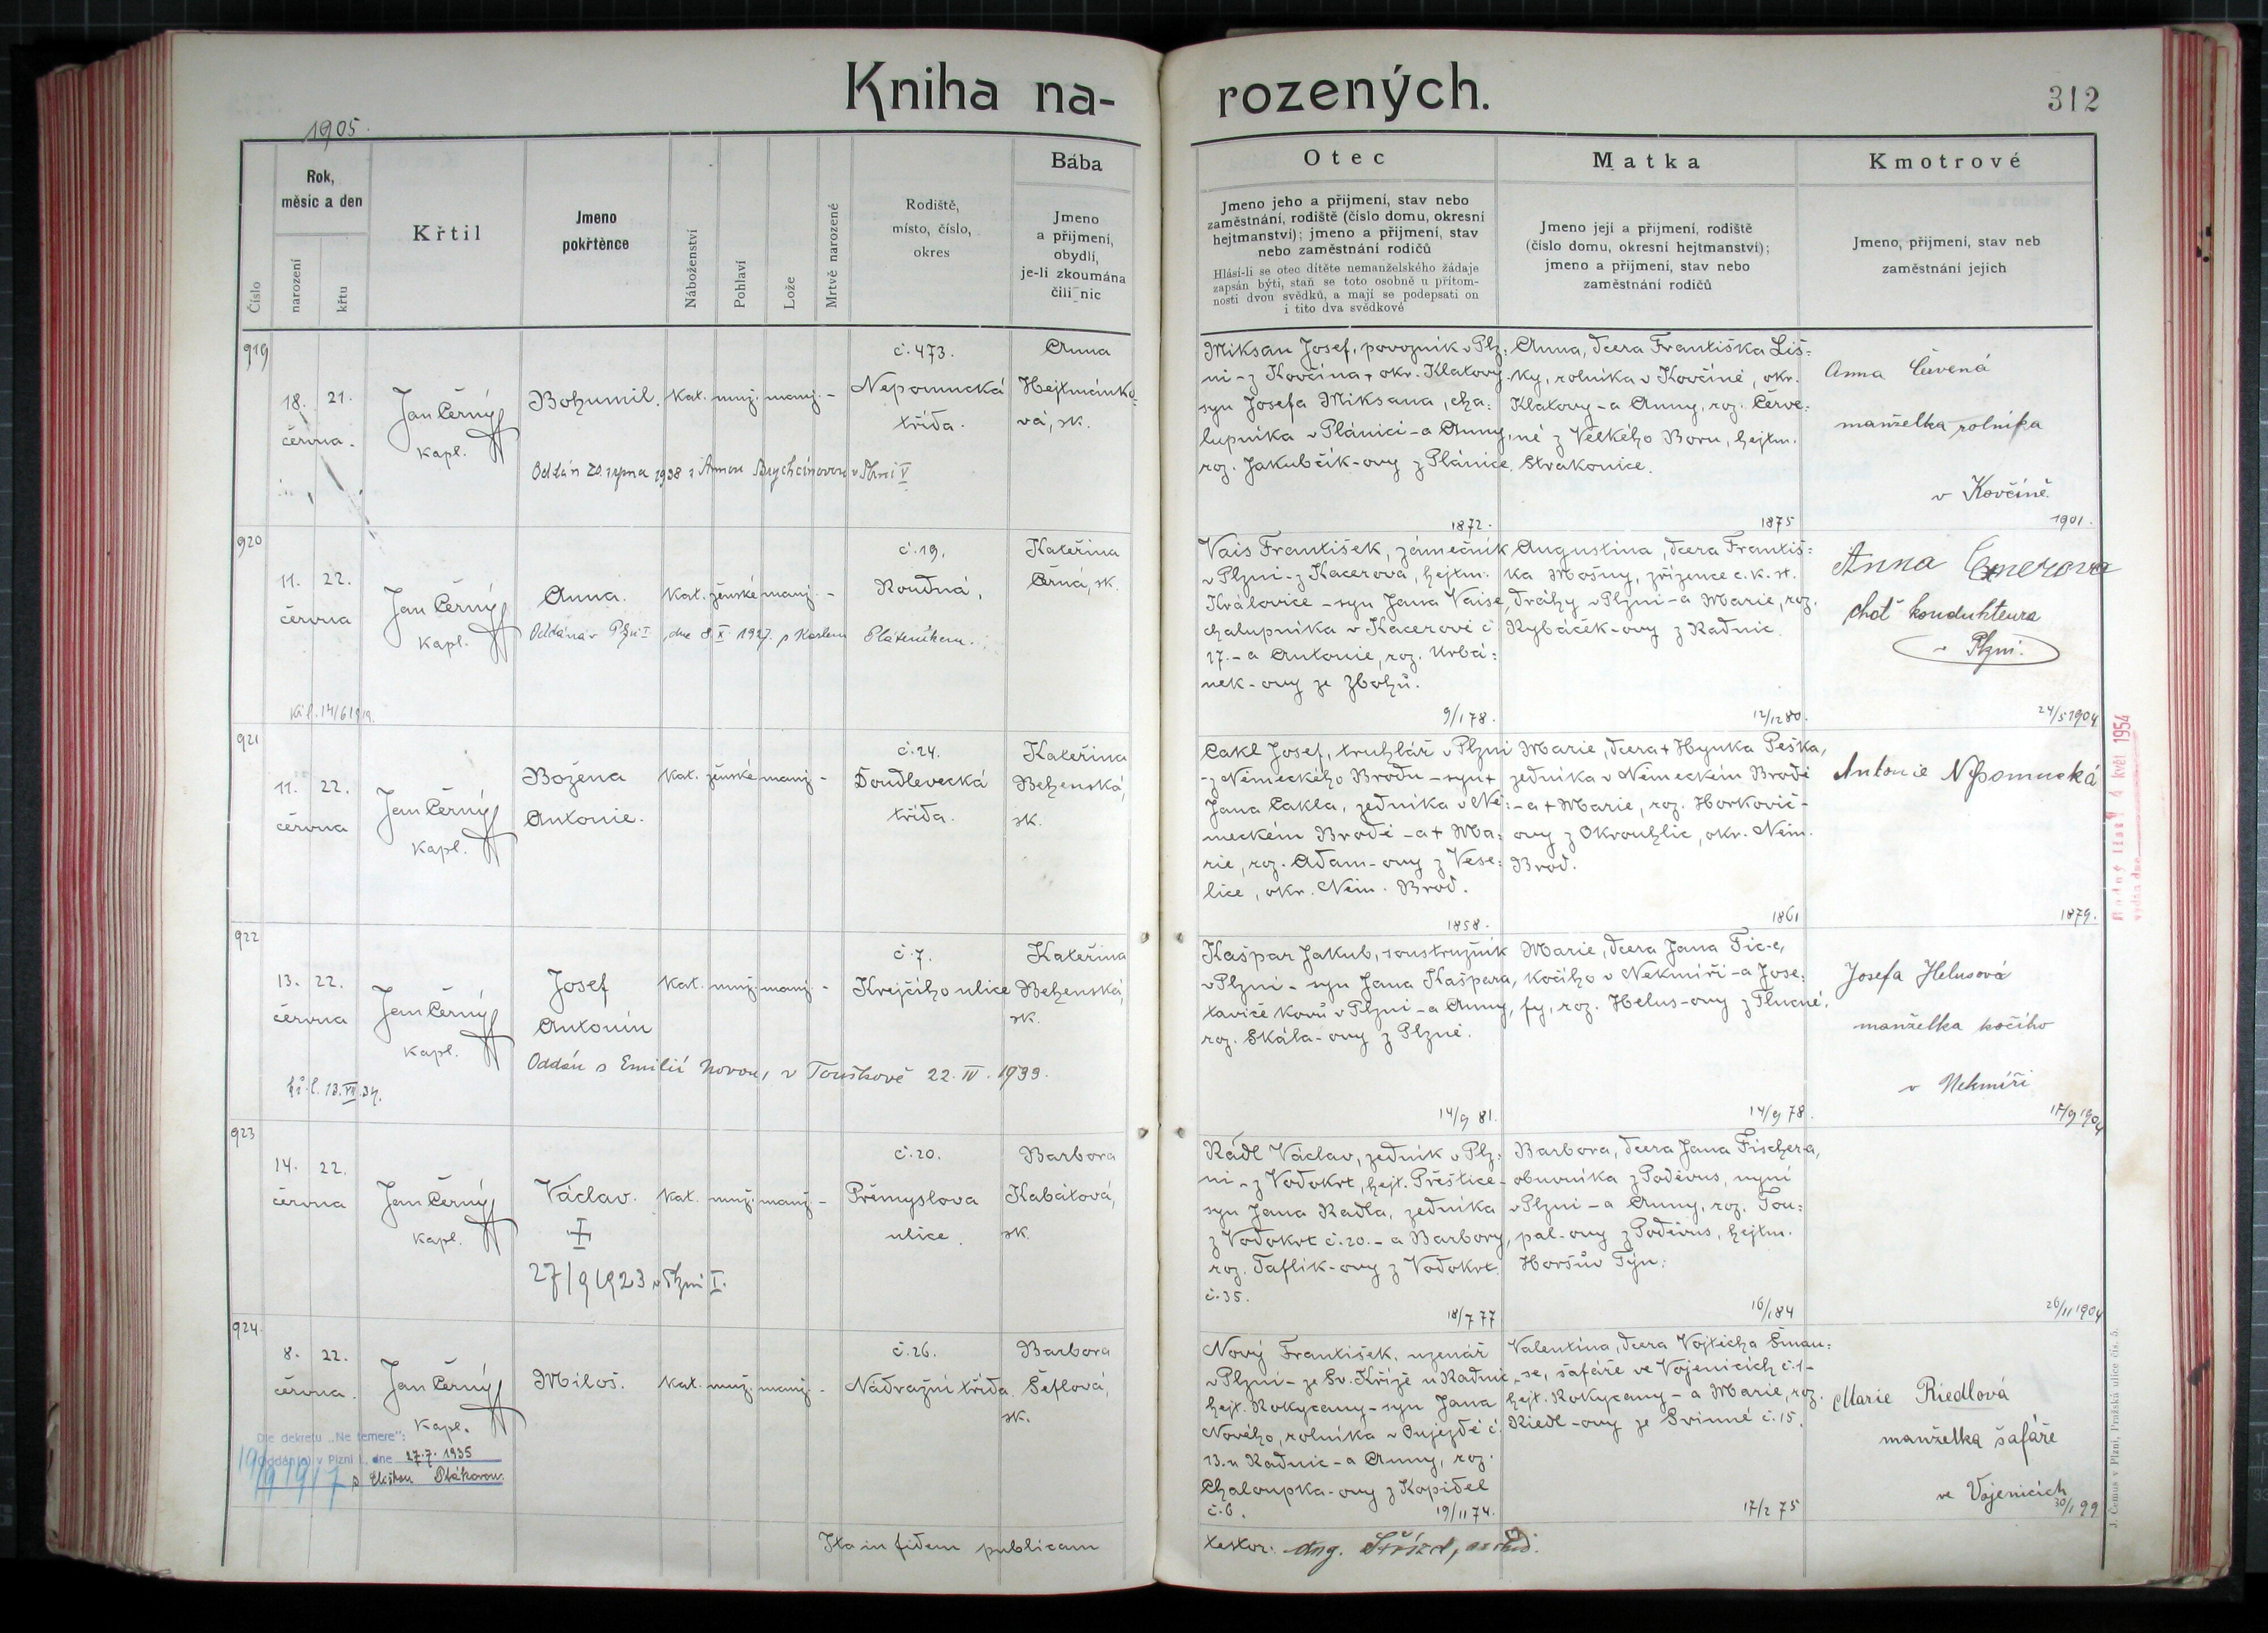 Kniha na-
rozených.
312
1905.
Číslo
Rok,
měsíc a den
narození
křtu
Křtil
Jmeno
pokřtěnce
Náboženství
Pohlaví
Lože
Mrtvě narozené
Rodiště,
místo, číslo,
okres
Bába
Jmeno
a přijmení,
obydlí,
je-li zkoumána
čili nic
Otec
Jmeno jeho a přijmení, stav nebo
zaměstnání, rodiště (číslo domu, okresní
hejtmanství); jmeno a přijmení, stav
nebo zaměstnání rodičů
Hlásí-li se otec dítěte nemanželského žádaje
zapsán býti, staň se toto osobně u přítom-
nosti dvou svědků, a mají se podepsati on
i tito dva svědkové
Matka
Jmeno její a přijmení, rodiště
(číslo domu, okresní hejtmanství);
jmeno a přijmení, stav nebo
zaměstnání rodičů
Kmotrové
Jmeno, přijmení, stav neb
zaměstnání jejich
919
18. 21.
června.
Jan Černý
kapl.
Bohumil.
kat. muž. manž. -
č. 473.
Nepomucká
třída.
Anna
Hejtmánko-
vá, zk.
Oddán 20. srpna 1938 s Annou Brychcínovou v Plzni V
Miksan Josef, povozník v Plz:
ni - z Kovčína, okr. Klatovy -
syn Josefa Miksana, cha:
lupníka v Plánici - a Anny,
roz. Jakubčík-ovy z Plánice.
1872.
Anna, dcera Františka Liš-
ky, rolníka v Kovčíně, okr.
Klatovy - a Anny, roz. Červe:
né z Velkého Boru, hejtm.
Strakonice.
1875
Anna Červená
manželka rolníka
v Kovčíně.
1901.
920
11. 22.
června
Jan Černý
kapl.
Anna.
kat. ženské manž. -
č. 19.
Roudná,
Kateřina
Černá, zk.
Oddána v Plzni I, dne 8. X. 1927. s Karlem Pláteníkem.
Vais František, zámečník
v Plzni - z Kacerova, hejtm.
Kralovice - syn Jana Vaise,
chalupníka v Kacerově č
17. - a Antonie, roz. Urbá:
nek-ovy ze Zbohů.
9/1 78.
Augustina, dcera Františ:
ka Mošny, zřízence c. k. st.
dráhy v Plzni - a Marie, roz.
Rybáček-ovy z Radnic.
12/12 80.
Anna
choť kondukteura
v Plzni.
24/5 1904
921
11. 22.
června
Jan Černý
kapl.
Božena
Antonie.
kat. ženské manž. -
č. 24.
Doudlevecká
třída.
Kateřina
Behenská,
zk.
Cakl Josef, truhlář v Plzni
- z Německého Brodu - syn +
Jana Cakla, zedníka v Ně:
meckém Brodě - a + Ma:
rie, roz. Adam-ovy z Vese:
lice, okr. Něm. Brod.
1858.
Marie, dcera + Hynka Peška,
zedníka v Německém Brodě
- a + Marie, roz. Horkovič-
ovy z Okrouhlic, okr. Něm.
Brod.
1861
Antonie Nepomucká
1879.
Rodný list
vydán dne
4 květ 1954
922
13. 22.
června
Jan Černý
kapl.
Josef
Antonín
kat. muž. manž. -
č. 7.
Krejčího ulice
Kateřina
Behenská,
zk.
Oddán s Emilií Novou, v Touškově 22. IV. 1933.
kř. l. 13. VII. 34.
Kašpar Jakub, soustružník
v Plzni - syn Jana Kašpara,
taviče kovů v Plzni - a Anny,
roz. Skála-ovy z Plzně.
14/9 81.
Marie, dcera Jana Fic-e,
kočího v Nekmíři - a Jose:
fy, roz. Helus-ovy z Tlucné.
14/9 78.
Josefa Helusová
manželka kočího
v Nekmíři
923
14. 22.
června
Jan Černý
kapl.
Václav.
kat. muž. manž. -
č. 20.
Přemyslova
ulice.
Barbora
Kabátová,
zk.
27/9 1923 v Plzni I.
Rádl Václav, zedník v Plz:
ni - z Vodokrt, hejt. Přeštice -
syn Jana Radla, zedníka
z Vodokrt č. 20. - a Barbory,
roz. Taflík-ovy z Vodokrt
č. 35.
18/7 77
Barbora, dcera Jana Fischera,
obuvníka z Poděvus, nyní
v Plzni - a Anny, roz. Tou:
pal-ovy z Poděvus, hejtm.
Horšův Týn.
16/1 84
26/11 1904
924.
8. 22.
června.
Jan Černý
kapl.
Miloš.
kat. muž. manž. -
č. 26.
Nádražní třída.
Barbora
Šeflová,
zk.
Dle dekretu „Ne temere":
Oddán(a) v Plzni I., dne 27. 7. 1935
Nový František, uzenář
v Plzni - ze Sv. Kříže u Radnic,
hejt. Rokycany - syn Jana
Nového, rolníka v Oujezdě č.
13. u Radnic - a Anny, roz.
Chaloupka-ovy z Kopidel
č. 6.
19/11 74.
Valentina, dcera Vojtěcha Šmau:
se, šafáře ve Vojenicích č. 1 -
hejt. Rokycany - a Marie, roz.
Riedl-ovy ze Svinné č. 15.
17/2 75
Marie Riedlová
manželka šafáře
ve Vojenicích
30/1 99
Ita in fidem publicam
testor:
J. Čemus v Plzni, Pražská ulice čís. 5.